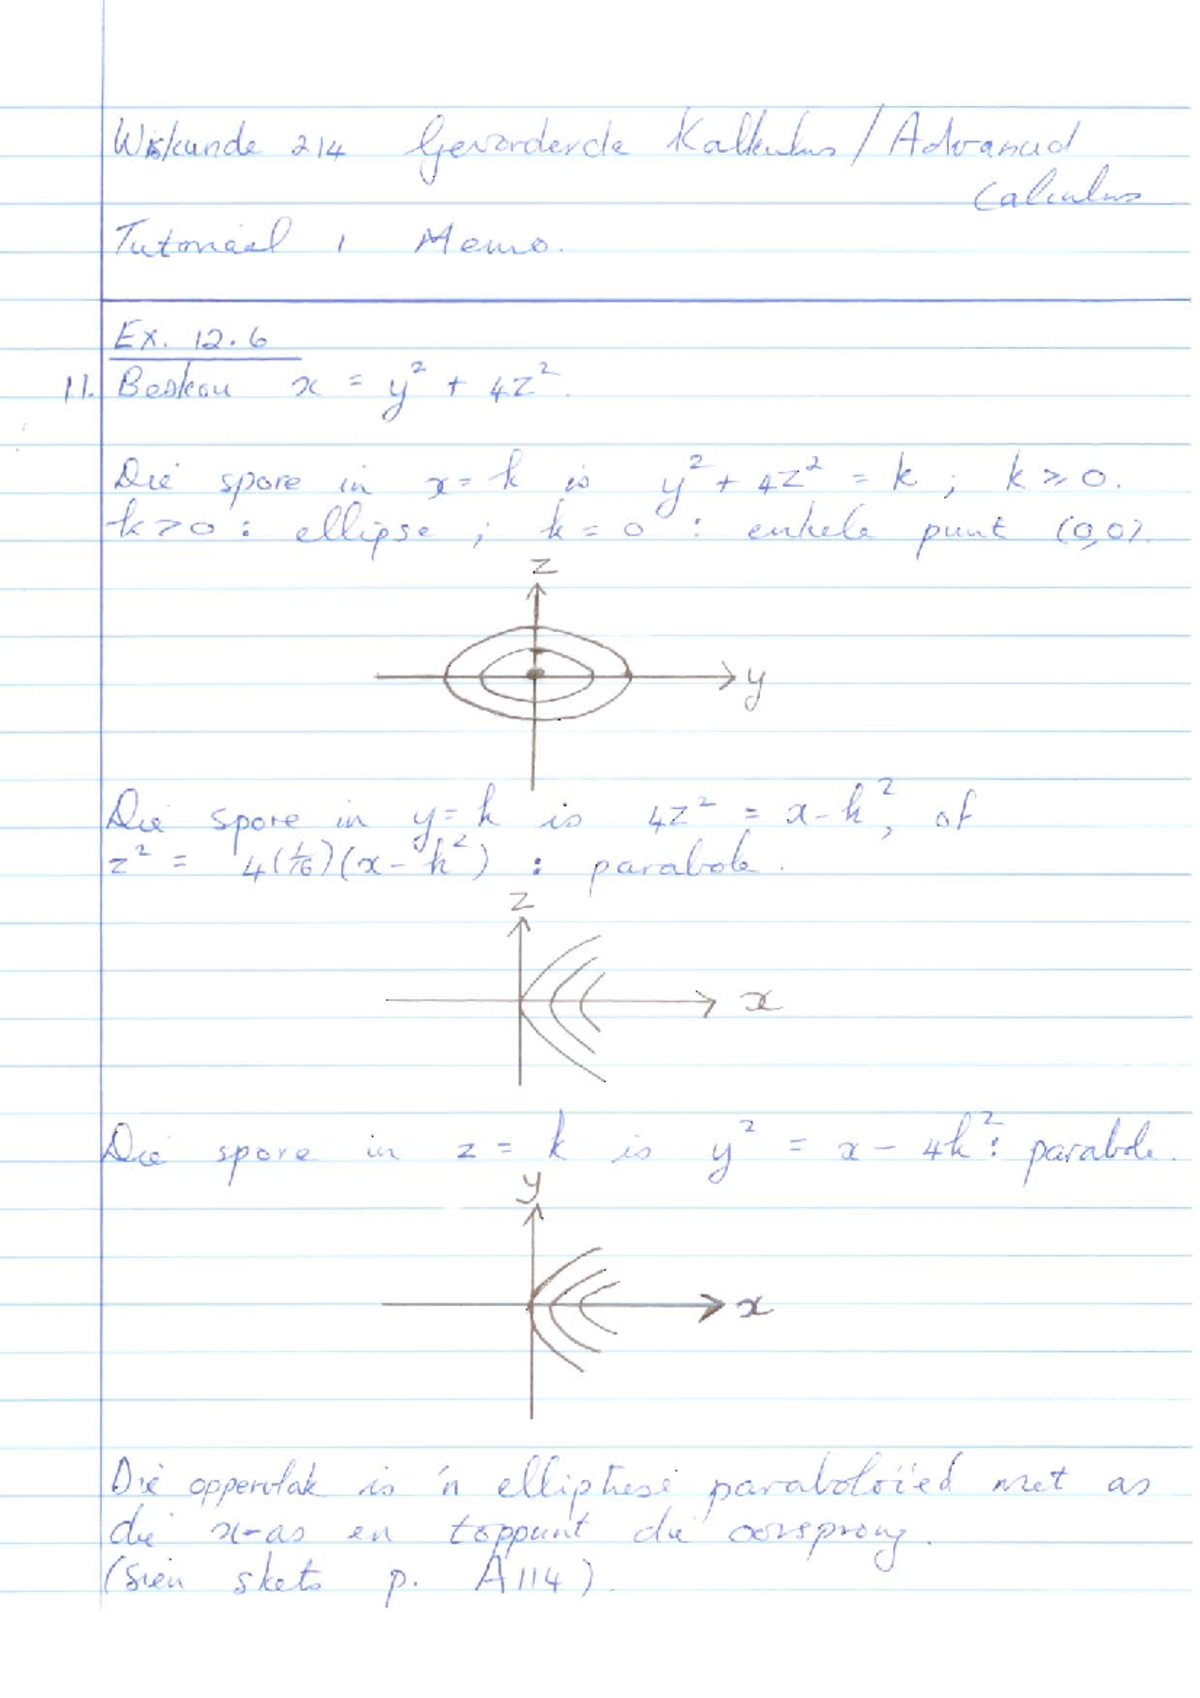 Wiskunde 214 Gevorderde Kalkulus / Advanced
Calculus
Tutoriaal 1 Memo.
Ex. 12.6
11. Beskou x = y² + 4z².
Die spore in x = k is y² + 4z² = k ; k ≥ 0.
k > 0 : ellipse ; k = 0 : enkele punt (0,0).
z
y
Die spore in y = k is 4z² = x - k², of
z² = 4(1/16)(x - k²) : parabole.
z
x
Die spore in z = k is y² = x - 4k² : parabole.
y
x
Die oppervlak is 'n elliptiese paraboloïed met as
die x-as en toppunt die oorsprong.
(Sien skets p. A114).